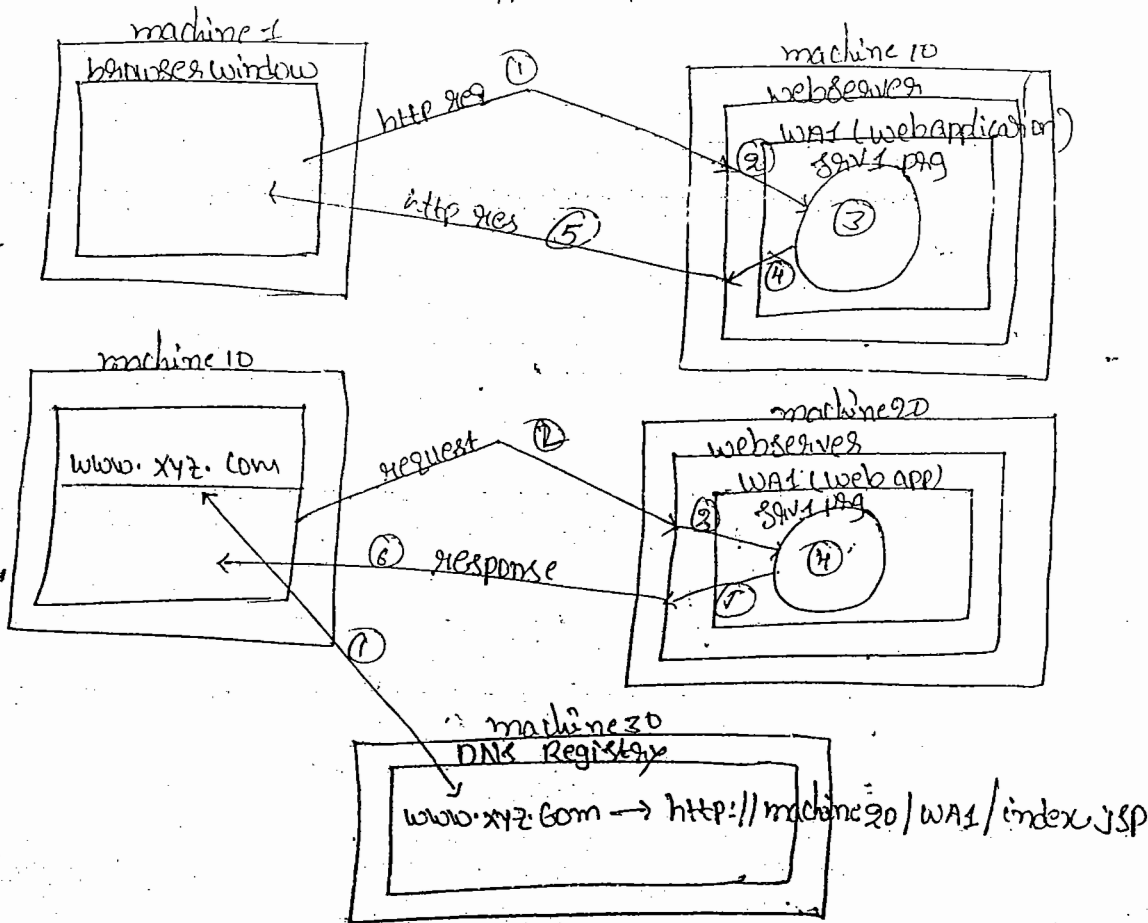 machine-1
browser window
http req ①
http res ⑤
machine 10
webserver
WA1 (webapplication)
srv1 prg
②
③
④
machine 10
www.xyz.com
request ②
⑥ response
①
machine 20
webserver
WA1 (web app)
srv1 prg
③
④
⑤
machine 30
DNS Registry
www.xyz.com → http://machine20/WA1/index.jsp